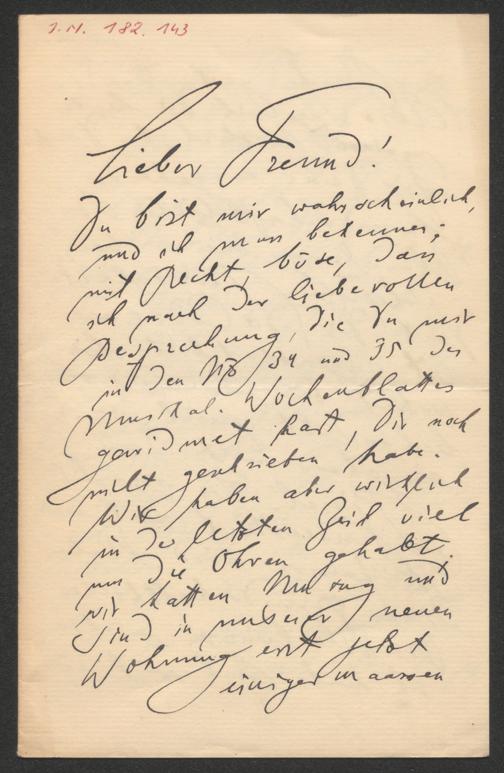 I.N. 182.143
Lieber Freund!
Du bist mir wahrscheinlich,
und ich muss bekennen,
mit Recht, böse, dass
ich nach der liebevollen
Besprechung, die Du mir
in den No 34 und 35 des
Musikal. Wochenblattes
gewidmet hast, Dir noch
nicht geschrieben habe.
Wir haben aber wirklich
in der letzten Zeit viel
um die Ohren gehabt.
wir hatten Umzug und
sind in unserer neuen
Wohnung erst jetzt
einigermaassen